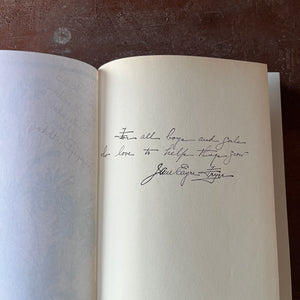 For all boys and girls
who love to help things grow
Jane Eayre Fryer